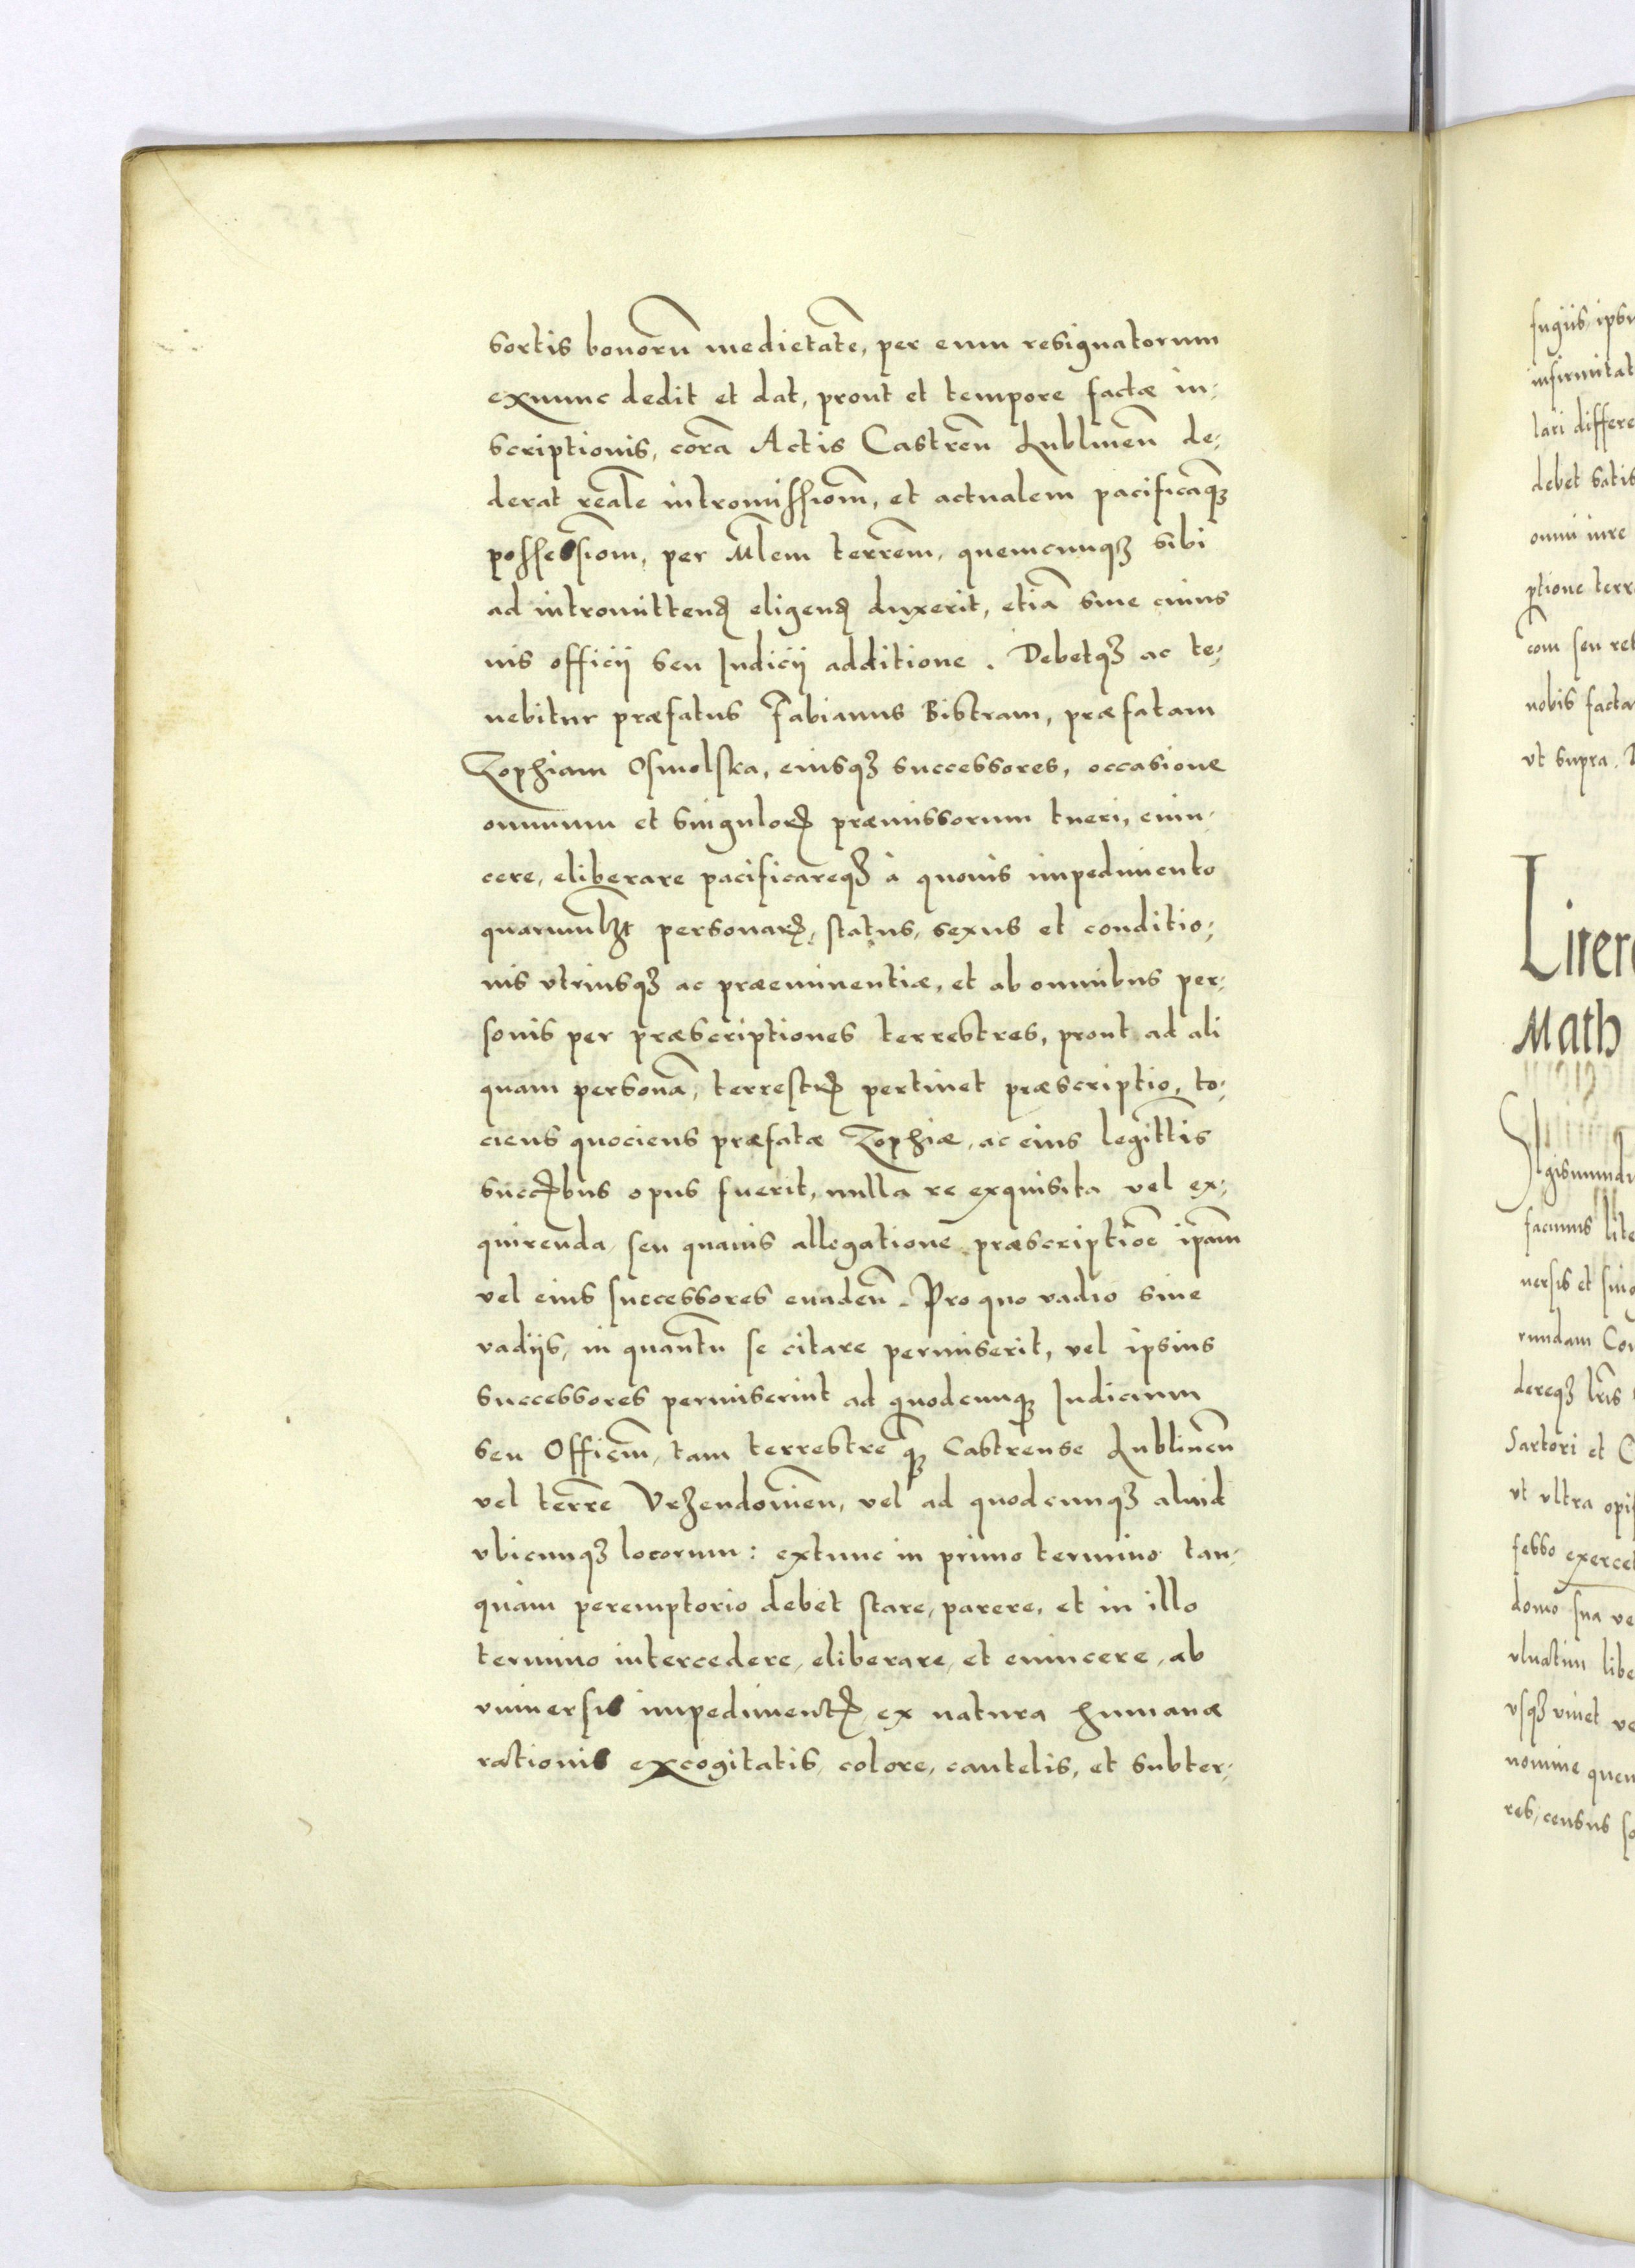 sortis bonorũ medietatẽ, per eum resignatorum
exnunc dedit et dat, prout et tempore factæ in-
scriptionis, corã Actis Castreñ Lublineñ de-
derat realẽ intromissioñm, et actualem pacificamq3
possessioñm, per Mlem terrẽm, quemcunq3 sibi
ad intromittenꝭ eligenꝭ duxerit, etiã sine cuius
uis officij seu Iudicij additione. Debetq3 ac te-
nebitur præfatus Fabianus Bistram, præfatam
Zophiam Osmolska, eiusq3 successores, occasione
omnium et singulorꝭ præmissorum tueri, euin-
cere, eliberare pacificareq3 à quouis impedimento
quarumlib3t personarꝭ, status, sexus et conditio-
nis vtriusq3 ac præeminentiæ, et ab omnibus per-
sonis per præscriptiones terrestres, prout ad ali
quam personã, terrestrꝭ pertinet præscriptio, to-
ciens quociens præfatæ Zophiæ, ac eius legittĩs
succꝭbus opus fuerit, nulla re exquisita vel ex-
quirenda, seu quauis allegatione præscriptioẽ ip̃am
vel eius successores euadeñ. Pro quo vadio siue
vadijs, in quantũ se citare permiserit, vel ipsius
successores permiserint ad quodcunq3 Iudicium
seu Officm̃, tam terrestre q̃3 Castrense Lublineñ
vel terrẽ Vrzendouieñ, vel ad quodcunq3 aliud
vbicunq3 locorum: extunc in primo termino tan-
quàm peremptorio debet stare, parere, et in illo
termino intercedere, eliberare, et euincere, ab
vniuersis impedimentꝭ ex natura humanæ
rationis excogitatis, colore, cautelis, et subter-
fugiis, ipsu
infirmitat
lari differe
debet satis
omni iure
ptione terr
com̃ seu ret
nobis facta
vt supra.
Litere
Math
Sigismundu
facimus lite
uersis et sing
rundam Con
dereq3 lr̃is
Sartori et C
vt vltra opif
febbo exerce
domo sua ve
vsq3 viuet ve
nomine quem
res, census so